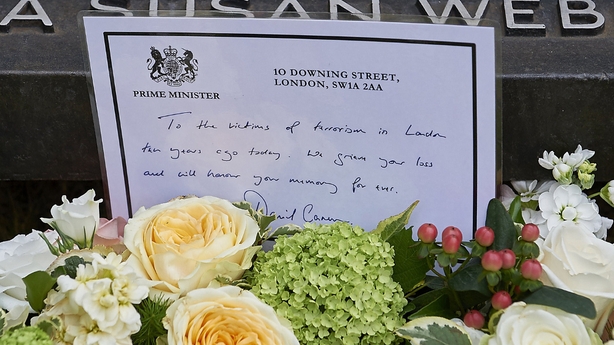 A SUSAN WEB
PRIME MINISTER
10 DOWNING STREET,
LONDON, SW1A 2AA
To the victims of terrorism in London
ten years ago today. We grieve your loss
and will honour your memory for ever.
David Camern